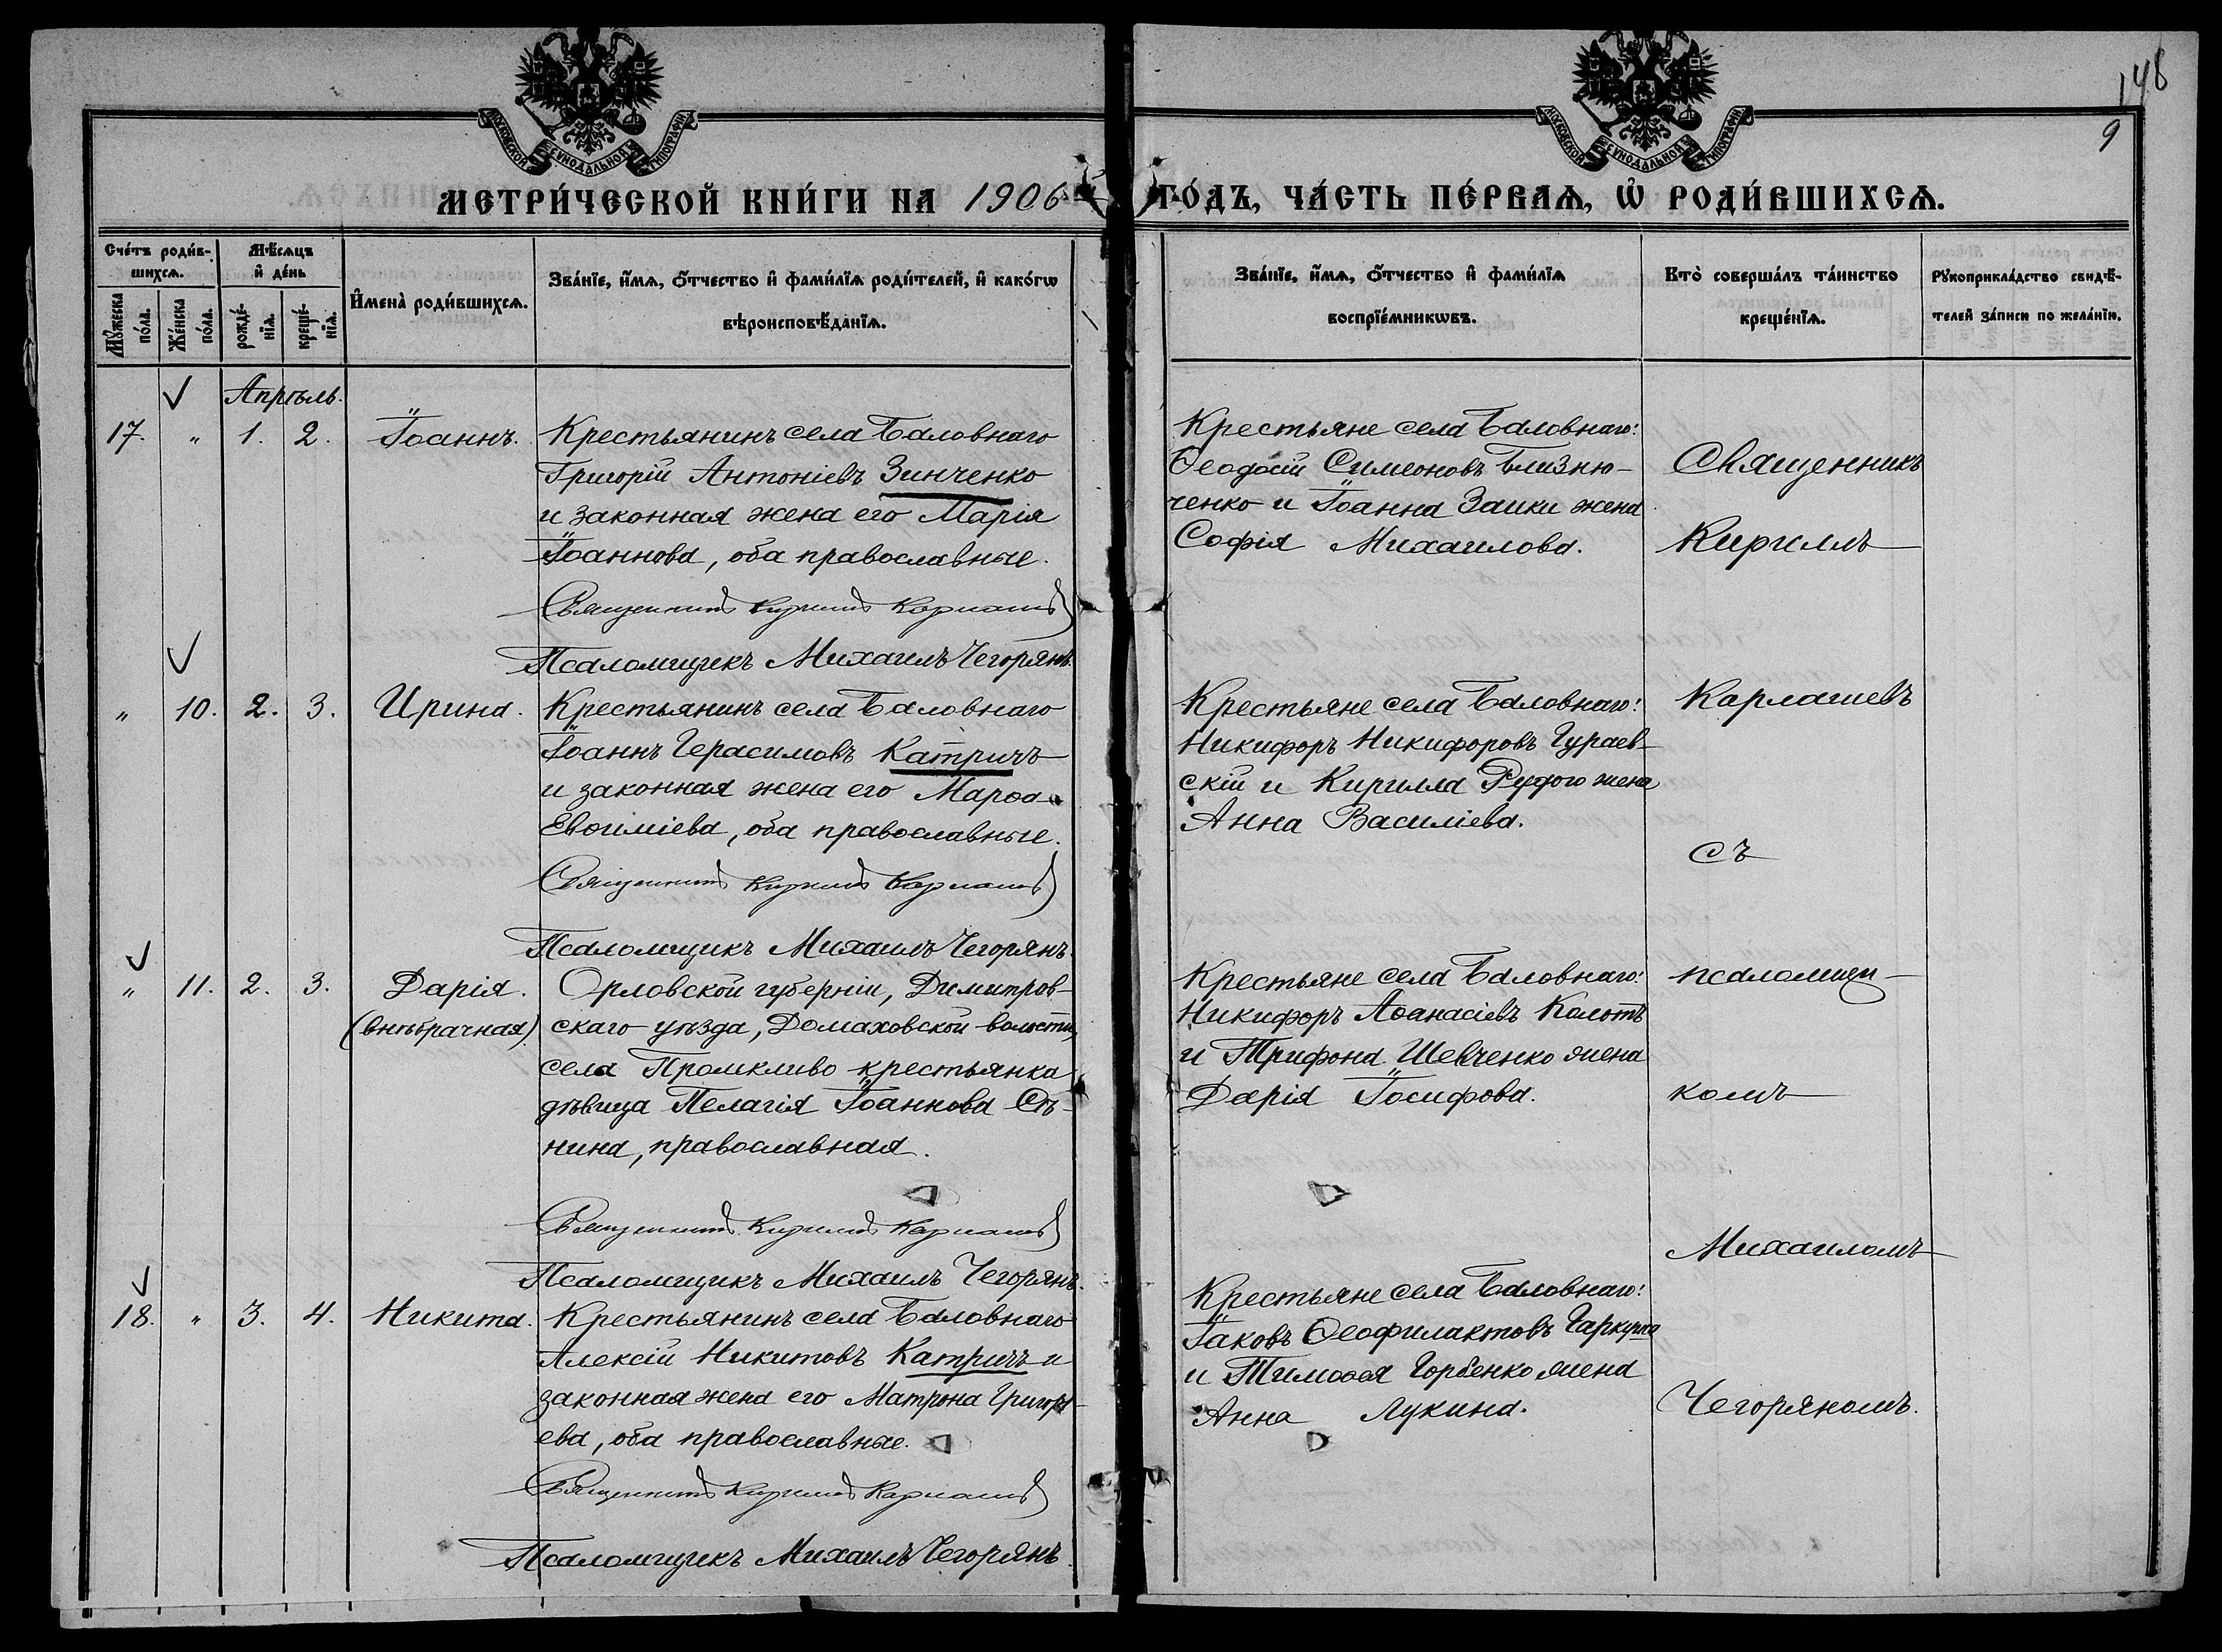 148
9
МОСКОВСКОЙ СѴНОДАЛЬНОЙ ТИПОГРАФІИ
МОСКОВСКОЙ СѴНОДАЛЬНОЙ ТИПОГРАФІИ
МЕТРИ́ЧЕСКОЙ КНИ́ГИ НА 1906 ГО́ДЪ, ЧА́СТЬ ПЕ́РВАѦ, Ѡ҆ РОДИ́ВШИХСѦ.
Сче́тъ роди́в-
шихсѧ.
Мѣ́сѧцъ
и҆ де́нь
Мꙋ́жеска
по́ла.
Же́нска
по́ла.
рожде́-
нїѧ.
креще́-
нїѧ.
И҆мена̀ роди́вшихсѧ.
Зва́нїе, и҆́мѧ, ѻ҆́тчество и҆ фами́лїѧ роди́телей, и҆ како́гѡ
вѣроисповѣ́данїѧ.
Зва́нїе, и҆́мѧ, ѻ҆́тчество и҆ фами́лїѧ
воспрїе́мникѡвъ.
Кто̀ соверша́лъ та́инство
креще́нїѧ.
Рꙋкоприкла́дство свидѣ́-
телей за́писи по жела́нїю.
Апрѣль.
17. " 1. 2. Іоаннъ.
Крестьянинъ села Баловнаго
Григорій Антоніевъ Зинченко
и законная жена его Марія
Іоаннова, оба православные.
Священникъ Кириллъ Карлашевъ
Псаломщикъ Михаилъ Чегорянъ.
Крестьяне села Баловнаго:
Ѳеодосій Симеоновъ Близню-
ченко и Іоанна Заики жена
Софія Михаилова.
Священникъ
Кириллъ
" 10. 2. 3. Ирина.
Крестьянинъ села Баловнаго
Іоаннъ Герасимовъ Катричъ
и законная жена его Марѳа
Евѳиміева, оба православные.
Священникъ Кириллъ Карлашевъ
Псаломщикъ Михаилъ Чегорянъ.
Крестьяне села Баловнаго:
Никифоръ Никифоровъ Гураев-
скій и Кирилла Рудого жена
Анна Василіева.
Карлашевъ
съ
" 11. 2. 3. Дарія.
(внѣбрачная).
Орловской губерніи, Димитров-
скаго уѣзда, Домаховской волости,
села Промкливо крестьянка
дѣвица Пелагія Іоаннова Сѣ-
нина, православная.
Священникъ Кириллъ Карлашевъ
Псаломщикъ Михаилъ Чегорянъ.
Крестьяне села Баловнаго:
Никифоръ Аѳанасіевъ Колотъ
и Трифона Шевченко жена
Дарія Іосифова.
псаломщи-
комъ
Михаиломъ
18. " 3. 4. Никита.
Крестьянинъ села Баловнаго
Алексій Никитовъ Катричъ и
законная жена его Матрона Григорі-
ева, оба православные.
Священникъ Кириллъ Карлашевъ
Псаломщикъ Михаилъ Чегорянъ.
Крестьяне села Баловнаго:
Іаковъ Ѳеофилактовъ Гаркуша
и Тимоѳея Горбенко жена
Анна Лукина.
Чегоряномъ.